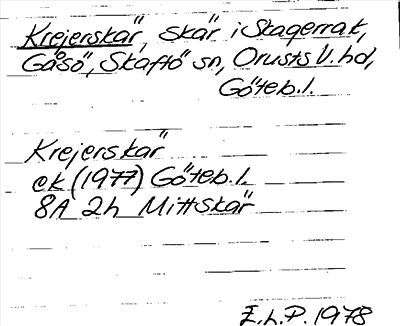 Krejerskär, skär i Skagerrak,
Gåsö, Skaftö sn, Orusts V. hd,
Göteb. l.
Krejerskär
ek (1977) Göteb. l.
8A 2h Mittskär
E.h.P. 1978